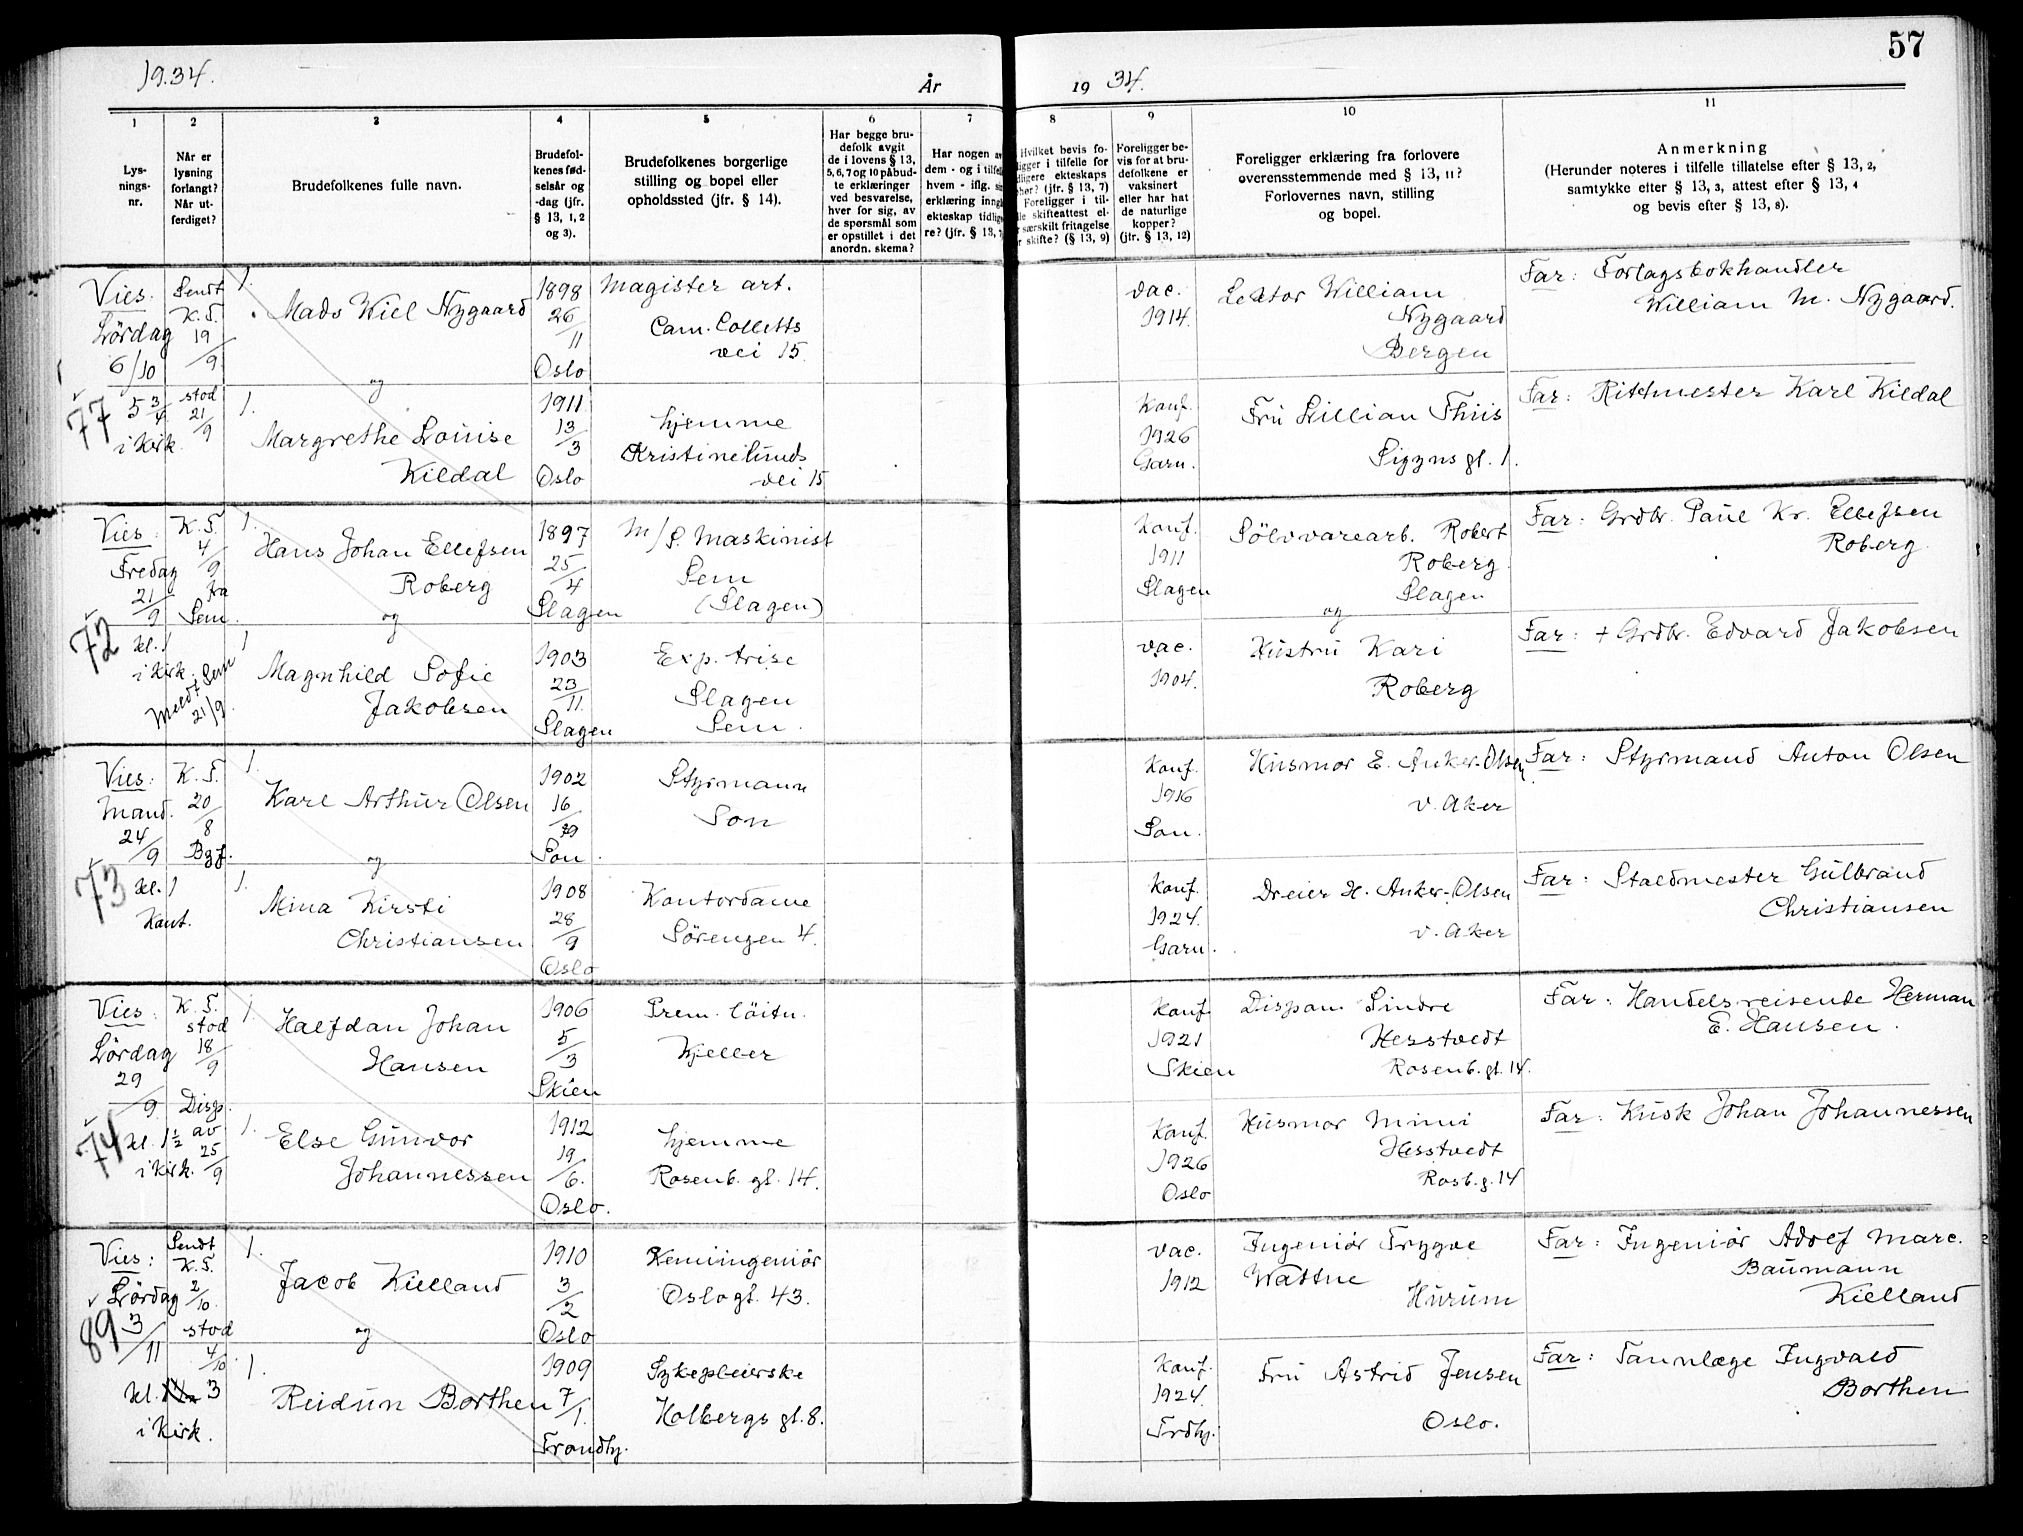 57
19.34.
År
19 34.
1
2
3
4
5
6
7
8
9
10
11
Lys-
nings-
nr.
Når er
lysning
forlangt?
Når ut-
ferdiget?
Brudefolkenes fulle navn.
Brudefol-
kenes fød-
selsår og
-dag (jfr.
§ 13, 1, 2
og 3).
Brudefolkenes borgerlige
stilling og bopel eller
opholdssted (jfr. § 14).
Har begge bru-
defolk avgit
de i lovens § 13,
5, 6, 7 og 10 påbud-
te erklæringer
ved besvarelse,
hver for sig, av
de spørsmål som
er opstillet i det
anordn. skema?
Har nogen
dem - og i tilfel
hvem - iflg.
erklæring inng
ekteskap tidlig
re? (jfr. § 13,
Hvilket bevis fo-
ligger i tilfelle for
ligere ekteskaps
her? (jfr. § 13, 7)
Foreligger i til-
le skifteattest el-
særskilt fritagelse
skifte? (§ 13, 9)
Foreligger be-
vis for at bru-
defolkene er
vaksinert
eller har hat
de naturlige
kopper?
(jfr. § 13, 12)
Foreligger erklæring fra forlovere
overensstemmende med § 13, 11?
Forlovernes navn, stilling
og bopel.
Anmerkning
(Herunder noteres i tilfelle tillatelse efter § 13, 2,
samtykke efter § 13, 3, attest efter § 13, 4
og bevis efter § 13, 8).
Vies:
Lördag
6/10
77
5 3/4
i Kirk.
Sendt
K. S.
19/9
stod
21/9
1.
Mads Wiel Nygaard
og
1.
Margrethe Louise
Kildal
1898
26/11
Oslo
1911
13/3
Oslo
Magister art.
Cam. Colletts
vei 15.
hjemme
Kristinelunds
vei 15
vac.
1914.
Konf.
1926
Garn.
Lektor William
Nygaard
Bergen
Fru Lillian Thiis
Sigyns gt. 1.
Far: Forlagsbokhandler
William M. Nygaard.
Far: Rittmester Karl Kildal
Vies:
Fredag
21/9
72
kl. 1
i Kirk.
Meldt Sem
21/9.
K. S.
4/9
fra
Sem.
1.
Hans Johan Ellefsen
Roberg
og
1
Magnhild Sofie
Jakobsen
1897
25/4
Slagen
1903
23/11
Slagen
M/S. Maskinist
Sem
(Slagen)
Exp. trise
Slagen
Sem.
Konf.
1911
Slagen
vac.
1904.
Sölvvarearb. Robert
Roberg.
Slagen
og
Hustru Kari
Roberg
Far: Grdbr. Paul Kr. Ellefsen
Roberg.
Far: + Grdbr. Edvard Jakobsen
Vies:
Mand.
24/9
73
kl. 1
Kont.
K. S.
20/8
Bgf.
1.
Karl Arthur Olsen
og
1.
Mina Kirsti
Christiansen
1902
16/
Son.
1908
28/9
Oslo
Styrmann
Son
Kontordame
Sörengen 4.
Konf.
1916
Son.
Konf.
1924.
Garn.
Husmor E. Anker-Olsen
v. Aker
Dreier H. Anker-Olsen
v. Aker
Far: Styrmand Anton Olsen
Far: Staldmester Gulbrand
Christiansen
Vies:
Lördag
29/9
74
kl. 1 1/2
i Kirk.
K. S.
stod
18/9
Disp.
av
25/9
1.
Halfdan Johan
Hansen
1.
Else Gunvor
Johannessen
1906
5/3
Skien
1912
19/6.
Oslo.
Prem. löitn.
Kjeller
hjemme
Rosenb. gt. 14.
Konf.
1921
Skien
Konf.
1926
Oslo
Dispon. Sindre
Hesstvedt
Rosenb. gt. 14.
Husmor Mimi
Hesstvedt
Rosb. g. 14
Far: Handelsreisende Herman
E. Hansen.
Far: Kusk Johan Johannessen
Vies:
Lördag
89
3/11
kl. 3
i Kirk.
Sendt
K. S.
2/10.
stod
4/10.
1.
Jacob Kielland
og
1.
Reidun Borthen
1910
3/2
Oslo
1909
7/1.
Trondhj.
Kemiingeniör
Oslogt. 43.
Sykepleierske
Holbergs gt. 8.
vac.
1912
Konf.
1924.
Trdhj.
Ingeniör Trygve
Wattne
Hurum
Fru Astrid Jensen
Oslo.
Far: Ingeniör Adolf Marc.
Baumann
Kielland
Far: Tannlæge Ingvald
Borthen